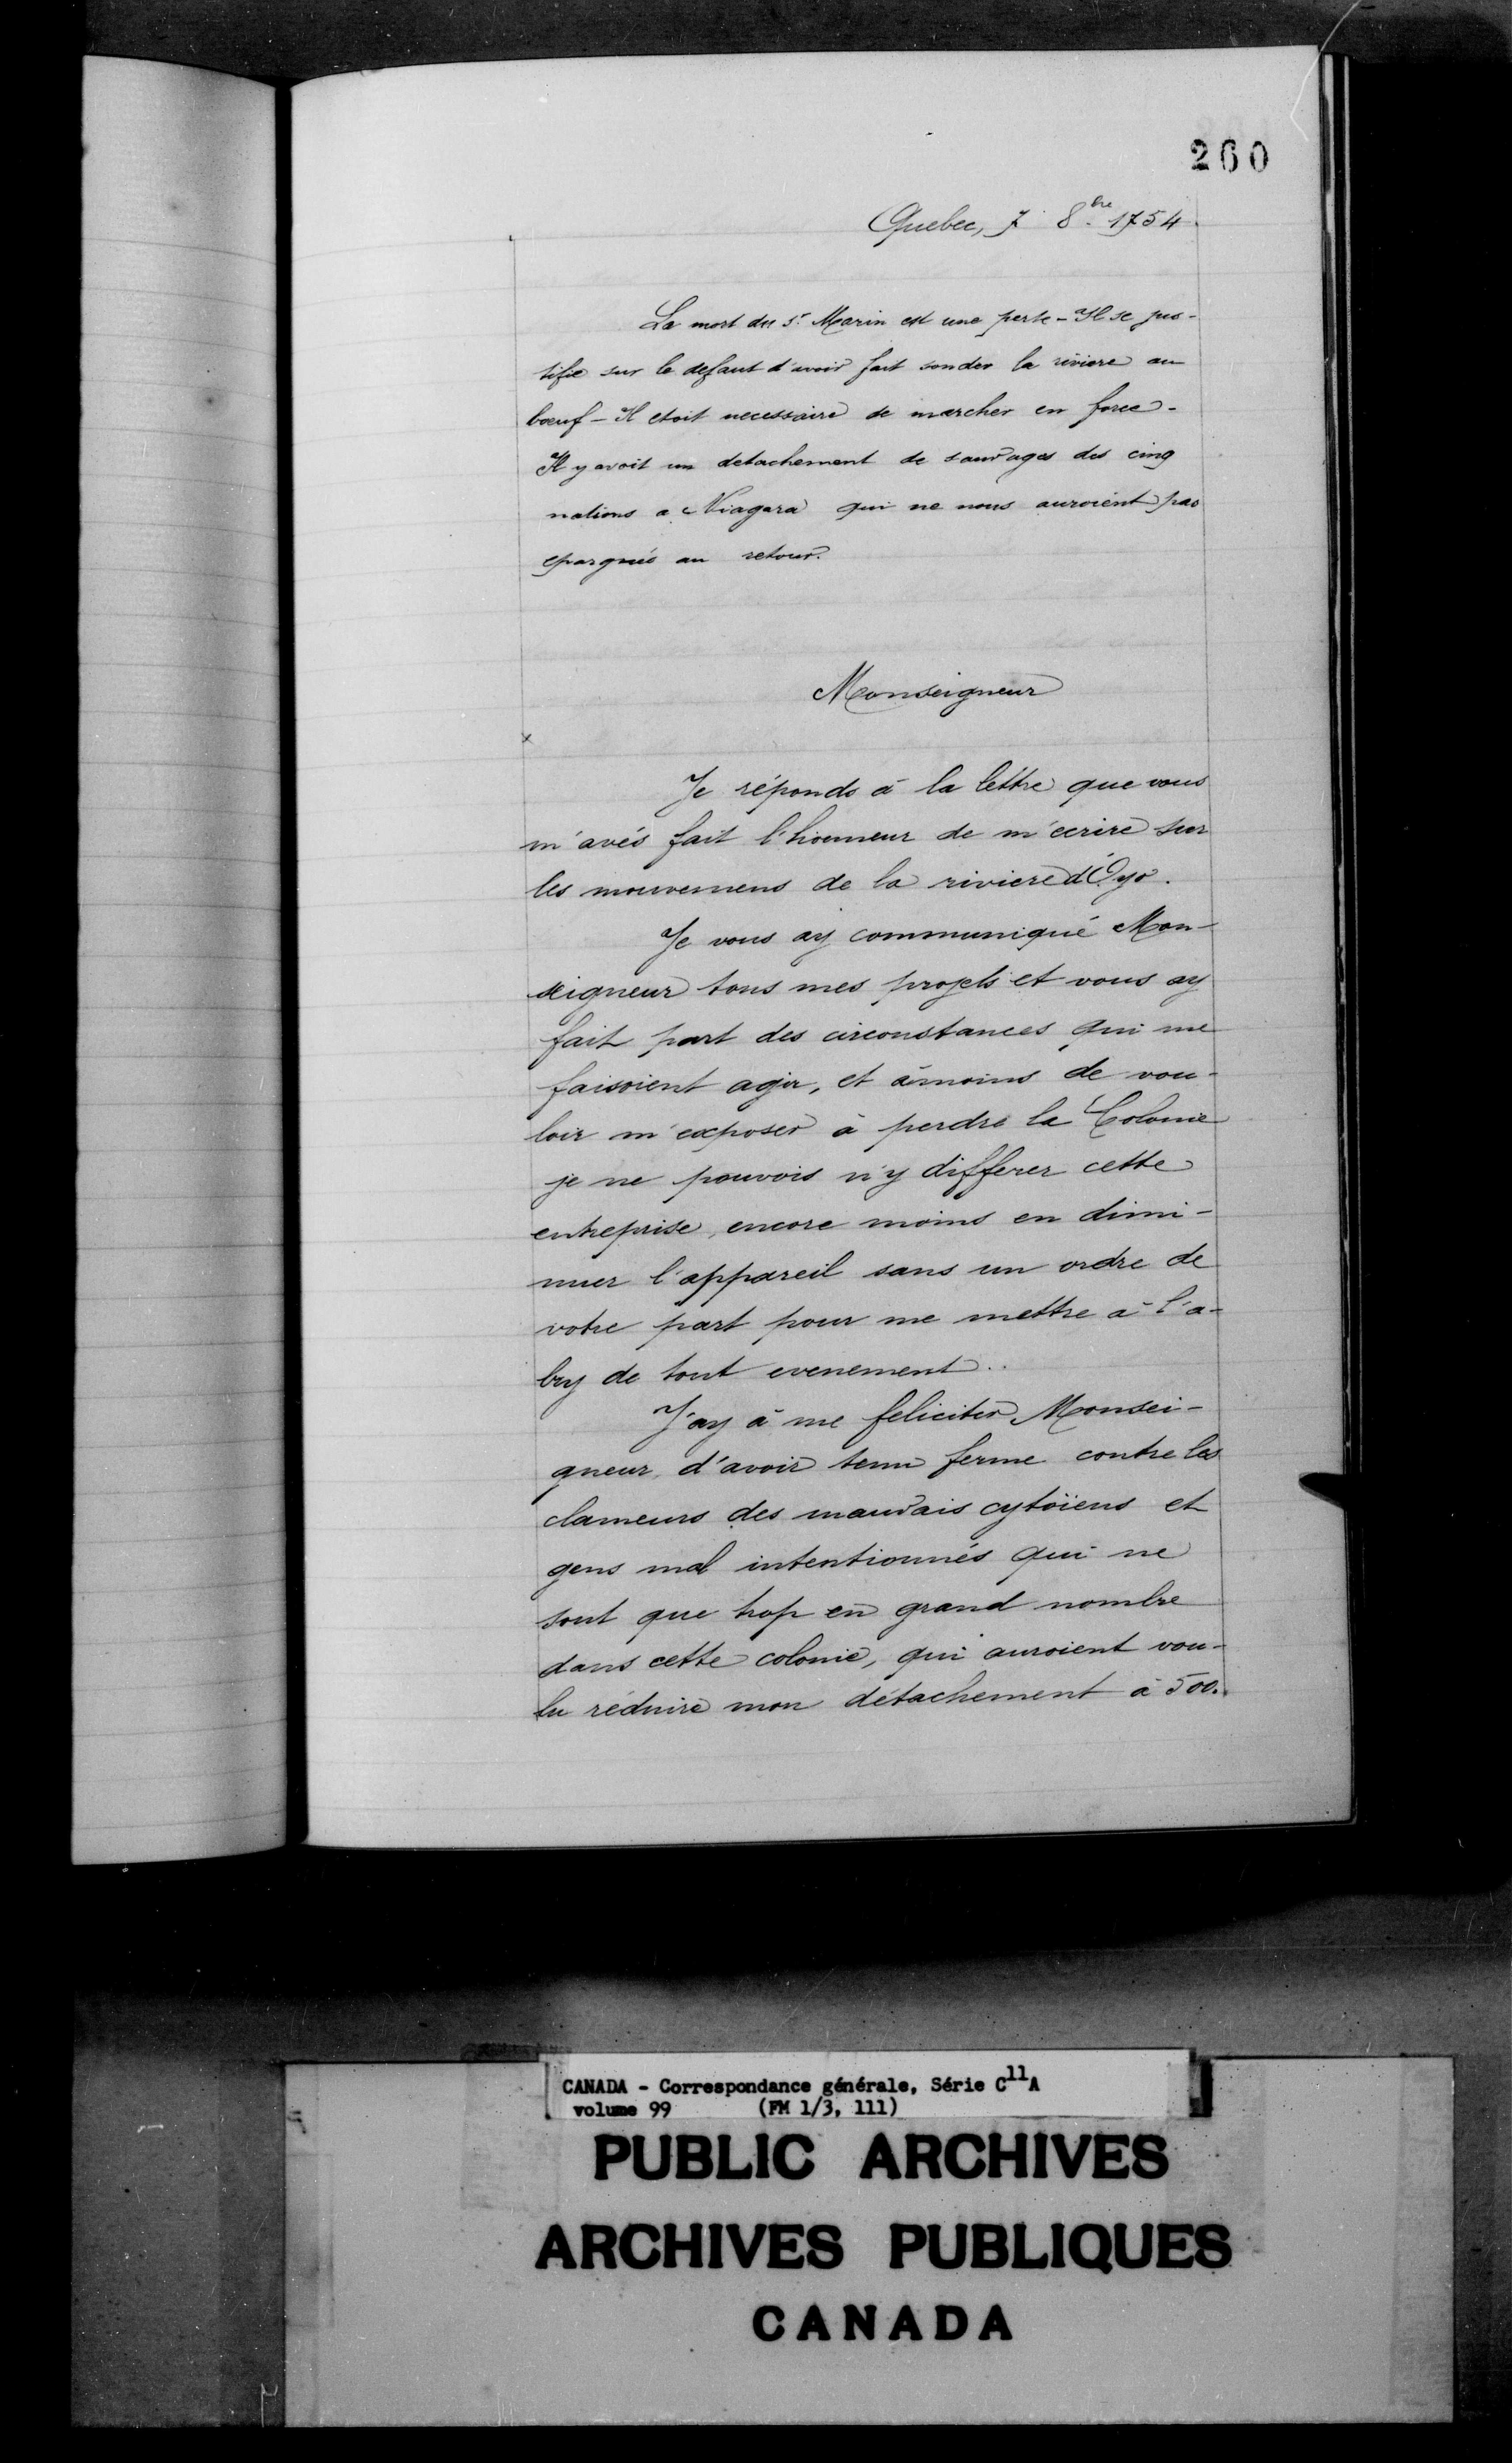 260
Quebec, 7 8bre 1754.
La mort du Sr. Marin est une perte - Il se jus-
tifie sur le defaut d'avoir fait sonder la riviere au
boeuf - Il etoit necessaire de marcher en force -
Il y avoit un detachement de sauvages des cinq
nations a Niagara qui ne nous auroient pas
epargnés au retour.
Monseigneur
x
Je réponds à la lettre que vous
m'avés fait l'honneur de m'ecrire sur
les mouvemens de la riviere d'Oyo.
Je vous ay communiqué Mon-
seigneur tous mes projets et vous ay
fait part des circonstances qui me
faisoient agir, et àmoins de vou-
loir m'exposer à perdre la Colonie
je ne pouvois n'y differer cette
entreprise, encore moins en dimi-
nuer l'appareil sans un ordre de
votre part pour me mettre à l'a-
bry de tout evenement..
J'ay à me feliciter Monsei-
gneur, d'avoir tenu ferme contre les
clameurs des mauvais cytoïens et
gens mal intentionnés qui ne
sont que trop en grand nombre
dans cette colonie, qui auroient vou-
lu réduire mon détachement à 500.
CANADA - Correspondance générale, Série C11A
volume 99 (FM 1/3, 111)
PUBLIC ARCHIVES
ARCHIVES PUBLIQUES
CANADA